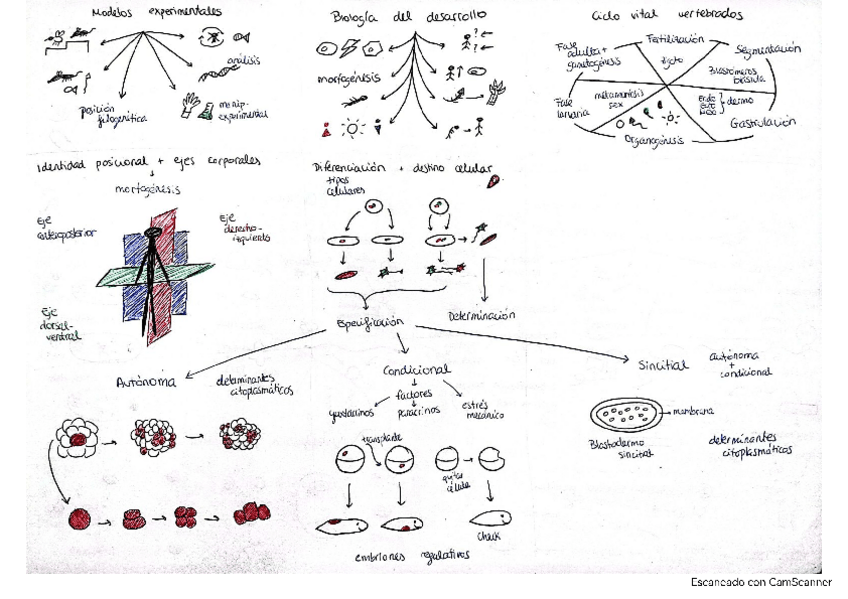 Modelos experimentales
análisis
manip.
experimental
Posición
filogenética
Biología del desarrollo
morfogénesis
Ciclo vital vertebrados
Fertilización
Zigoto
Segmentación
Blastómeros
blástula
Endo
ecto
meso
dermo
Gastrulación
Organogénesis
Fase
larvaria
metamorfosis
sex
Fase
adulta +
gametogénesis
Identidad posicional + ejes corporales
morfogénesis
eje
anteroposterior
eje
derecho-
izquierdo
eje
dorsal-
ventral
Diferenciación + destino celular
tipos
celulares
Determinación
Especificación
Autónoma
determinantes
citoplasmáticos
Condicional
factores
yuxtacrinos
paracrinos
estrés
mecánico
transplante
quitar
célula
embriones regulativos
Sincitial
autónoma
+
condicional
membrana
Blastodermo
sincitial
determinantes
citoplasmáticos
Escaneado con CamScanner